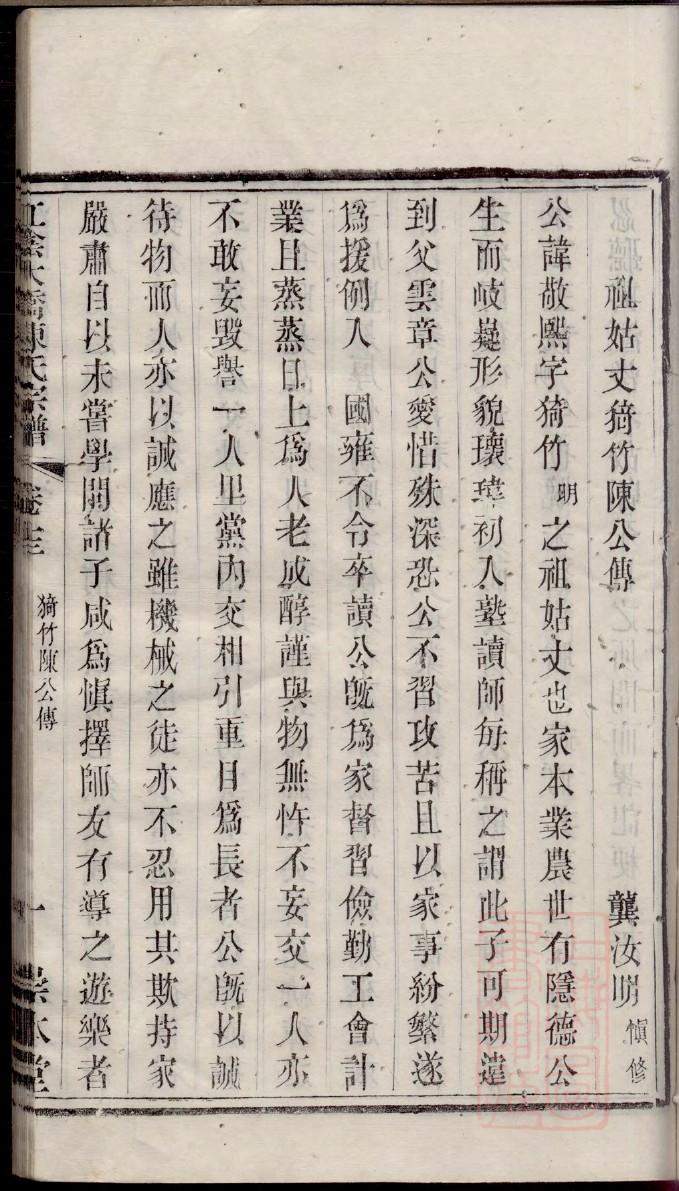 祖姑丈猗竹陳公傳 龔汝明 愼修
公諱敬熙字猗竹明之祖姑丈也家本業農世有隱德公
生而岐嶷形貌瓌瑋初入塾讀師每稱之謂此子可期遠
到父雲章公愛惜殊深恐公不習攻苦且以家事紛繁遂
爲援例入 國雍不令卒讀公旣爲家督習儉勤工會計
業且蒸蒸日上爲人老成醇謹與物無忤不妄交一人亦
不敢妄毀譽一人里黨內交相引重目爲長者公旣以誠
待物而人亦以誠應之雖機械之徒亦不忍用其欺持家
嚴肅自以未嘗學問諸子咸爲愼擇師友有導之遊樂者
江陰大橋陳氏宗譜 卷十三 猗竹陳公傳 一 崇本堂